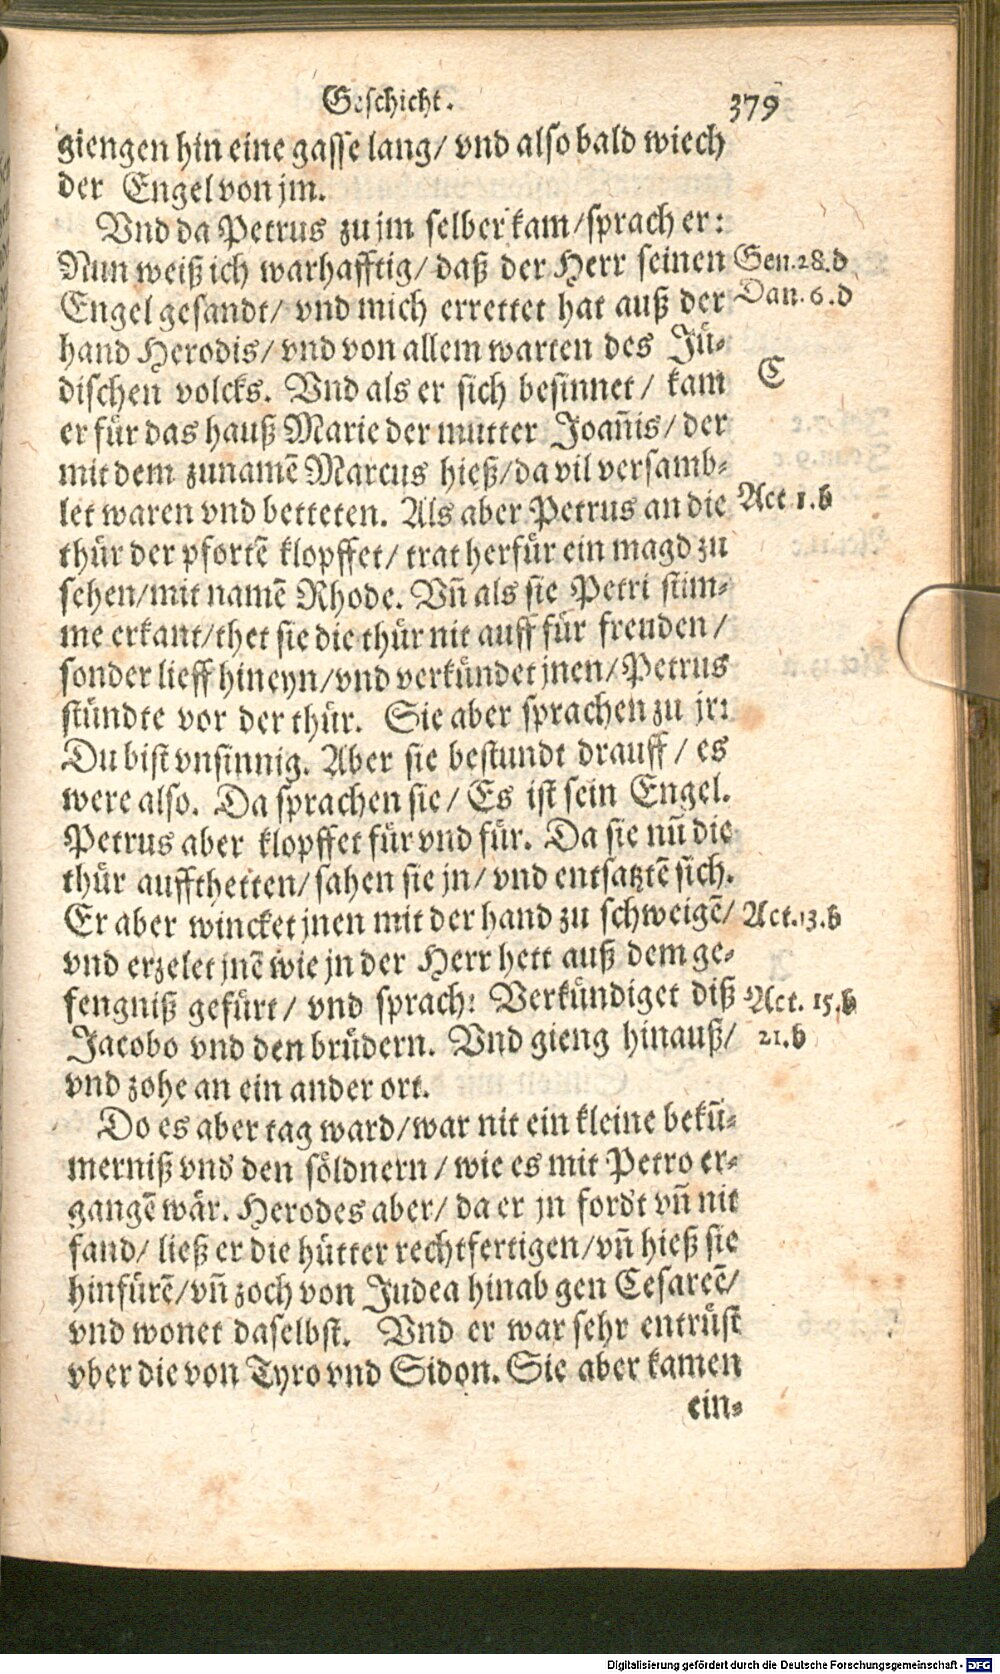 Geschicht. 379
giengen hin eine gasse lang/ vnd also bald wiech
der Engel von jm.
Vnd da Petrus zu jm selber kam/sprach er:
Nun weiß ich warhafftig/ daß der Herr seinen Gen.28.d
Engel gesandt/ vnd mich errettet hat auß der Dan.6.d
hand Herodis/ vnd von allem warten des Jü-
dischen volcks. Vnd als er sich besinnet/ kam C
er für das hauß Marie der mutter Joan̄is/ der
mit dem zunamē Marcus hieß/da vil versamb-
let waren vnd betteten. Als aber Petrus an die Act 1.b
thür der pfortē klopffet/ trat herfür ein magd zu
sehen/mit namē Rhode. Vn̄ als sie Petri stim-
me erkant/thet sie die thür nit auff für freuden/
sonder lieff hineyn/vnd verkündet jnen/Petrus
stündte vor der thür. Sie aber sprachen zu jr:
Du bist vnsinnig. Aber sie bestundt drauff/ es
were also. Da sprachen sie/ Es ist sein Engel.
Petrus aber klopffet für vnd für. Da sie nun̄ die
thür auffthetten/sahen sie jn/ vnd entsatztē sich.
Er aber wincket jnen mit der hand zu schweigē/ Act.13.b
vnd erzelet jnē wie jn der Herr hett auß dem ge-
fengniß gefürt/ vnd sprach: Verkündiget diß Act. 15.b
Jacobo vnd den brüdern. Vnd gieng hinauß/ 21.b
vnd zohe an ein ander ort.
Do es aber tag ward/war nit ein kleine bekū-
merniß vnd den söldnern/ wie es mit Petro er-
gangē wär. Herodes aber/ da er jn fordt vn̄ nit
fand/ ließ er die hütter rechtfertigen/vn̄ hieß sie
hinfürē/vn̄ zoch von Judea hinab gen Cesareē/
vnd wonet daselbst. Vnd er war sehr entrüst
vber die von Tyro vnd Sidon. Sie aber kamen
ein-
Digitalisierung gefördert durch die Deutsche Forschungsgemeinschaft - DFG